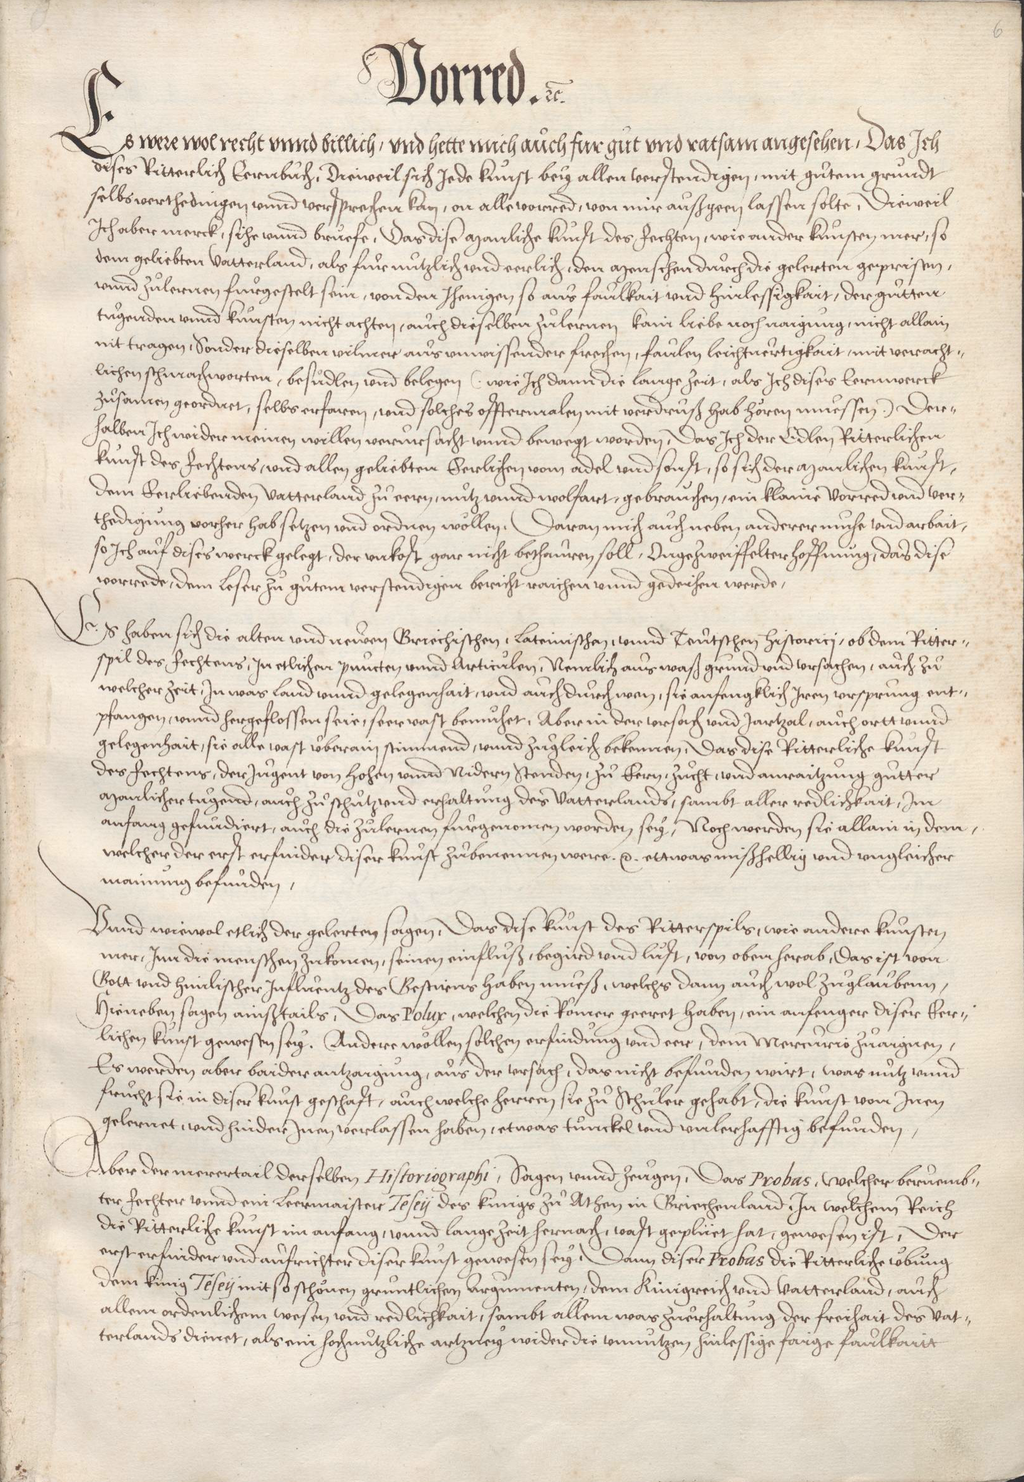 6
Vorred. ꝛc.
Es were wol recht vnnd billich, vnd hette mich aůch fur gůt vnd ratsam angesehen, Das Ich
dises Ritterlich Eernbůch, Dieweil sich Jede kůnst beÿ allen verstendigen, mit gůtem grundt
selbs verthedingen vnnd versprechen kan, on alle vorred, von mir aůßgeen lassen solte, Dieweil
Ich aber merck, sihe vnnd brůefe, Das dise Manliche kůnst des fechten, wie ander kůnsten mer, so
dem geliebten Vatterland, als fur nůtzlich vnd eerlich, den Menschen důrch die gelerten geprisen,
vnnd zůlernen furgestelt sein, von den Jhenigen so aůs faůlkait vnd hinlessigkait, der gůtten
tůgenden vnnd kůnsten nicht achten, aůch dieselben zůlernen kain liebe noch naigung, nicht allain
nit tragen, Sonder dieselben vilmer aůs vnwissender frechen, faůlen leichtuertigkait, mit veracht-
lichen schmachworten, besůdlen vnd belegen (: wie Ich dann die lange zeit, als Ich dises Eernwerck
zůsamen geordnet, selbs erfaren, vnd solches offtermalen mit verdrůß hab hören můessen :) Der-
halben Ich wider meinen willen verursacht vnnd bewegt worden, Das Ich der Edlen Ritterlichen
kůnst des fechtens, vnd allen geliebten Eerlichen vom adel vnd sonst, so sich der Manlichen kůnst,
dem Eerliebenden Vatterland zů eern, nůtz vnnd wolfart, gebraůchen, ein klaine Vorred vnd ver-
thedigung vorher hab setzen vnd ordnen wöllen, Daran mich aůch neben anderer můhe vnd arbait,
so Ich aůf dises werck gelegt, der vnkost gar nicht bethaůren soll, Vngezweiffelter hoffnůng, das dise
vorrede, dem Leser zů gůtem verstendigen bericht raichen vnnd gedeihen werde,
Es haben sich die alten vnd neůen Griechischen, Lateinischen, vnnd Teůtschen Historici, ob dem Ritter-
spil des fechtens, In etlichen půncten vnnd Articůlen, Nemlich aůs waß grund vnd vrsachen, aůch zů
welcher zeit, In was Land vnnd gelegenhait, vnd aůch důrch wen, sie anfengklich Iren vrsprung ent-
pfangen, vnnd hergeflossen seie, seer vast bemůhet, Aber in der vrsach vnd Jartzal, aůch ortt vnnd
gelegenhait, sie alle vast vberain stimmend, vnnd zůgleich bekennen, Das dise Ritterliche kůnst
des fechtens, der Jůgent von hohen vnnd Nidern Stenden, zů Eern, zůcht, vnd anraitzung gůtter
Manlicher tůgend, aůch zů schůtz vnd erhaltung des Vatterlands, sambt aller redlichkait, Im
anfang gefůndiert, aůch die zůlernen fürgenomen worden seÿ, Noch werden sie allain in dem,
welcher der erst erfinder diser kůnst zůbenennen were. ettwas mißhellig vnd vngleicher
mainung befůnden,
Vnnd wiewol etlich der gelerten sagen, Das dise kůnst des Ritterspils, wie andere kůnsten
mer, Inn die menschen zůkomen, seinen einflůß, begird vnd lůst, von oben herab, Das ist von
Gott vnd himlischer Inflůentz des Gestirns haben můeß, welchs dann aůch wol zůglaůben,
Hieneben sagen ainßtails, Das Polux, welchen die Römer geeret haben, ein anfenger diser Eer-
lichen kůnst gewesen seÿ. Andere wöllen solchen erfindung vnd eer, dem Mercůrio zůaignen,
Es werden aber baider antzaigung, aůs der vrsach, das nicht befůnden wirt, was nůtz vnnd
frůcht sie in diser kůnst geschafft, aůch welche herren sie zů Schůler gehabt, die kůnst von Inen
gelernet, vnd hinder Inen verlassen haben, etwas tůnckel vnd vnlerhafftig befůnden,
Aber der merertail derselben Historiographi, Sagen vnnd zaigen, Das Probas, welcher berůemb-
ter fechter vnnd ein Leermaister Teseÿ des kinigs zů Athen in Griechenland, In welchem Reich
die Ritterliche kůnst im anfang, vnnd lange zeit hernach, vast geplůet hat, gewesen ist, Der
erst erfinder vnd aůfrichter diser kůnst gewesen seÿ, Dann diser Probas die Ritterliche vbung
dem kinig Tesej mit so schönen grůntlichen Argůmenten, dem Kůnigreich vnd Vatterland, aůch
allem ordenlichem wesen vnd redlichkait, sambt allem was zůerhaltung der freihait des Vat-
terlands dienet, als ein hochnůtzliche artzneÿ wider die vnnůtzen hinlessige faige faůlkaitt